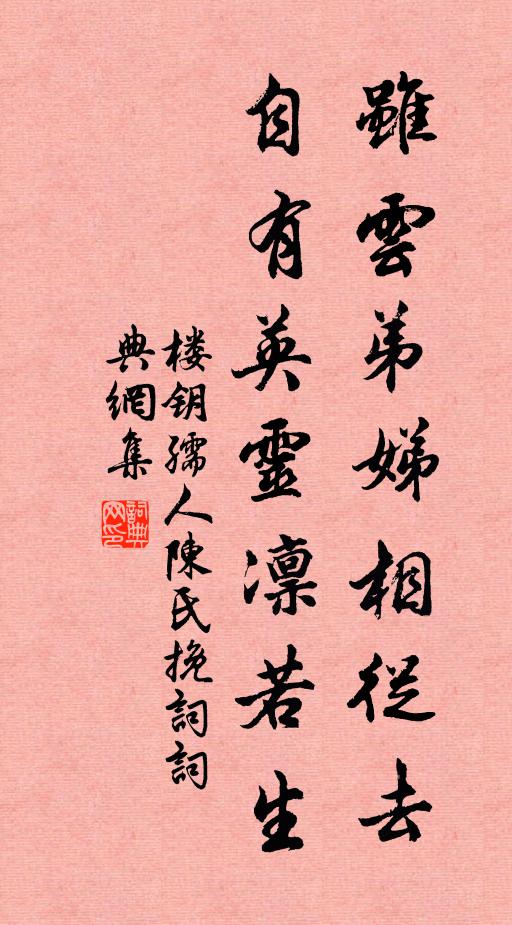 雖雲弟娣相從去
自有英靈凛若生
楼钥孺人陳氏挽詞詞
典網集
詞典网印